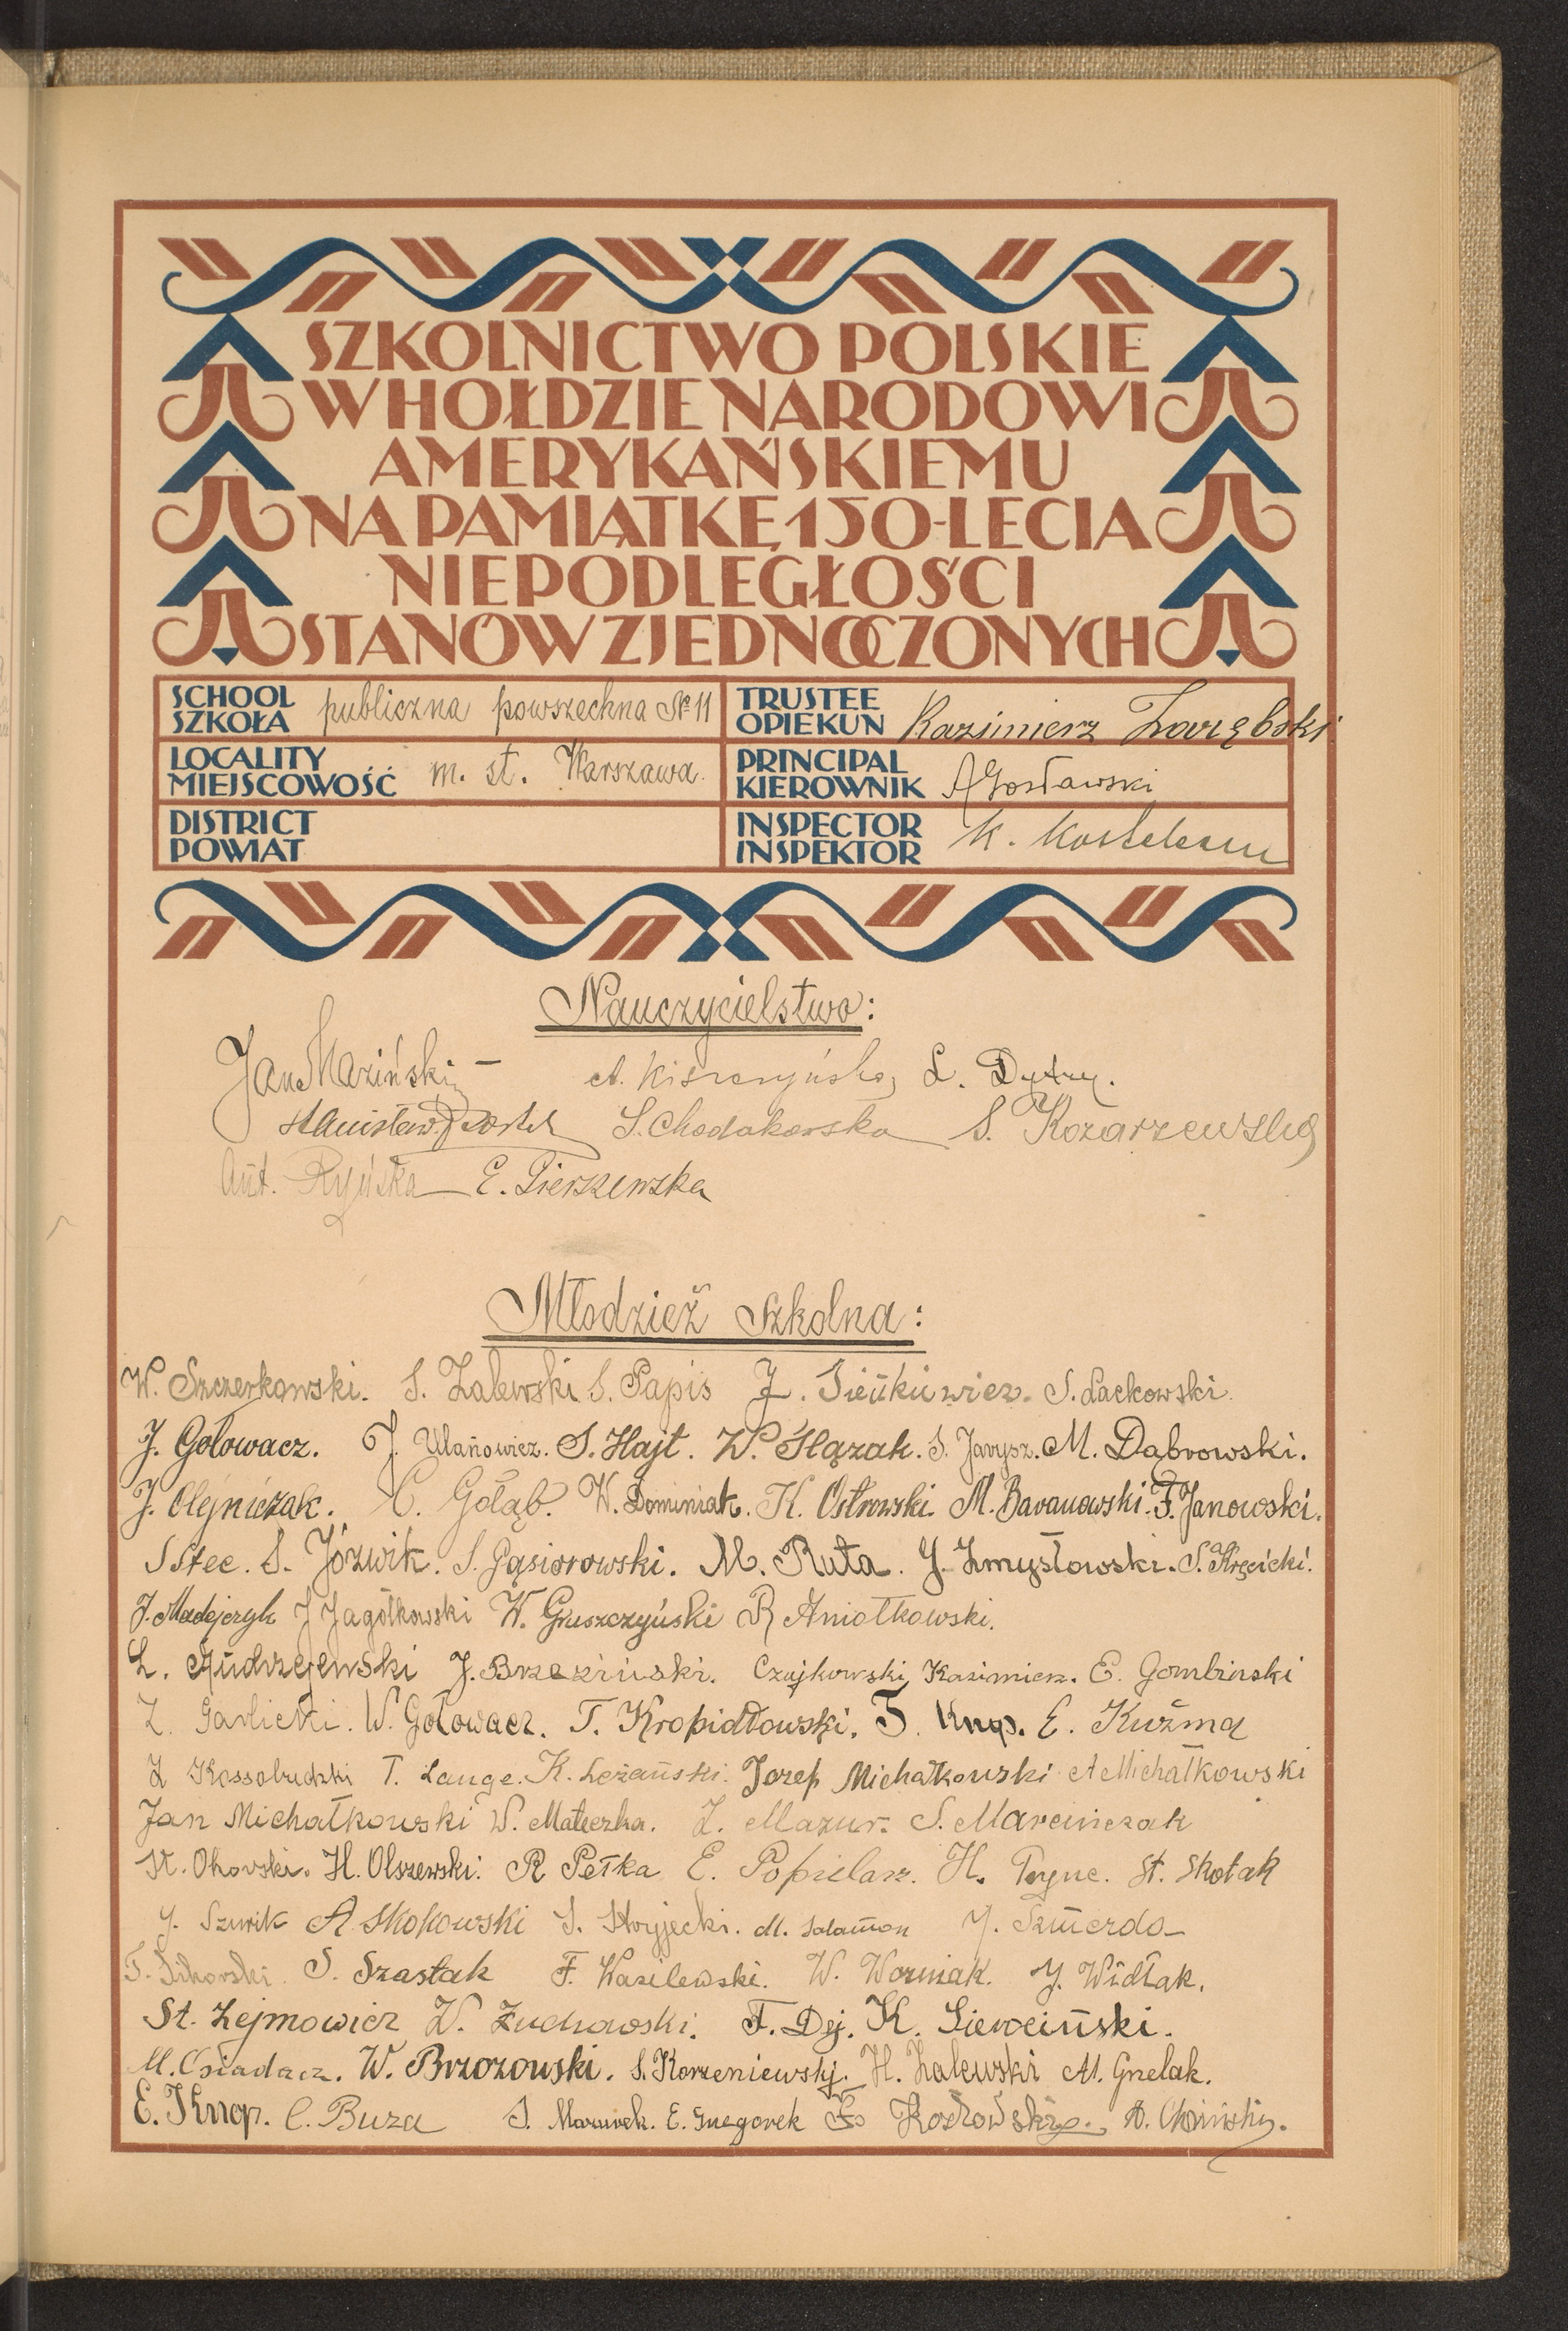 SZKOLNICTWO POLSKIE
W HOŁDZIE NARODOWI
AMERYKAŃSKIEMU
NA PAMIĄTKĘ 150-LECIA
NIEPODLEGŁOŚCI
STANÓW ZJEDNOCZONYCH
SCHOOL SZKOŁA publiczna powszechna № 11
TRUSTEE OPIEKUN Kazimierz Zarębski
LOCALITY MIEJSCOWOŚĆ m. st. Warszawa.
PRINCIPAL KIEROWNIK A Gosławski
DISTRICT POWIAT
INSPECTOR INSPEKTOR K.
Nauczycielstwo:
Jan Maziński A. L. Dytry.
Stanisław S. Chodakowska S. Kozarzewska
Ant. Ryńska E. Pierszewska
Młodzież Szkolna:
W. Szczerkowski. S. Zalewski S. Papis J. Sieńkiewicz. S. Lackowski.
J. Gołowacz. J. Ulanowicz. S. Hajt. W. Ślązak. S. Jarysz. M. Dąbrowski.
J. Olejniczak. C. Gołąb. W. Dominiak. K. Ostrowski. M. Baranowski. F. Janowski.
S Stec. S. Jóźwik. S. Gąsiorowski. M. Ruta. J. Zmysłowski. S. Kręcicki.
J. Madejczyk J Jagółkowski W. Gruszczyński R Aniołkowski.
L. Andrzejewski J. Brzeziński. Czajkowski Kazimierz. E. Gombinski
Z. Garlicki. W. Gołowacz. T. Kropidłowski. T. Knap. E. Kuźma
Z Kossobudzki T. Lange. K. Leżański. Józef Michałkowski A Michałkowski
Jan Michałkowski W. Mateczka. Z. Mazur. S. Marciniczak
K. Okorski. H. Olszewski. R Petka E. Popielarz. H. Pryne. St. Skotak
J. Szwik A Skokowski S. Stryjecki. M. Salamon J. Szmerdo
T. Sikorski. S. Szastak F. Wasilewski. W. Wozniak. J. Widłak.
St. Zejmowicz W. Żuchowski. F. Dej. K. Sierociński.
M. Osiadacz. W. Brzozowski. S. Korzeniewski. H. Zalewski M. Grzelak.
E. Knap. C. Buza S. Mazurek. E. Gregorek Kozłowski